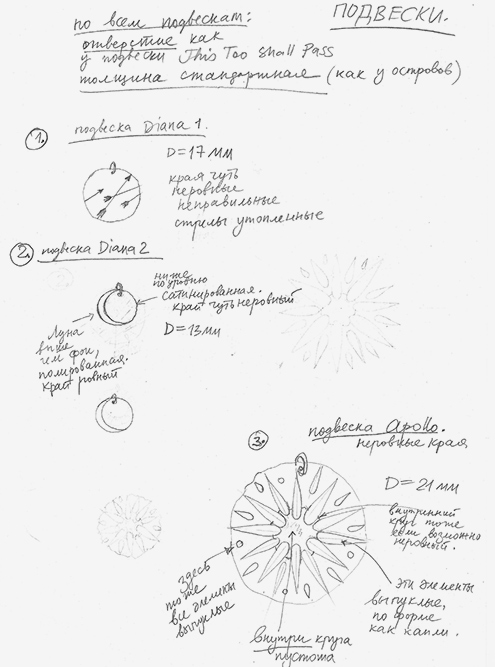 ПОДВЕСКИ.
по всем подвескам:
отверстие как
у подвески This Too Shall Pass
толщина стандартная (как у островов)
1. подвеска Diana 1.
D=17 мм
края чуть
неровные
неправильные
стрелы утопленные
2. подвеска Diana 2
ниже
по уровню
Сатинированная.
край чуть неровный
D=13мм
Луна
выше
чем фон,
полированная.
край ровный
3. подвеска Apollo.
неровные края
D=21 мм
внутренний
круг тоже
если возможно
неровный.
здесь
тоже
все элементы
выпуклые
эти элементы
выпуклые,
по форме
как капли.
внутри круга
пустота